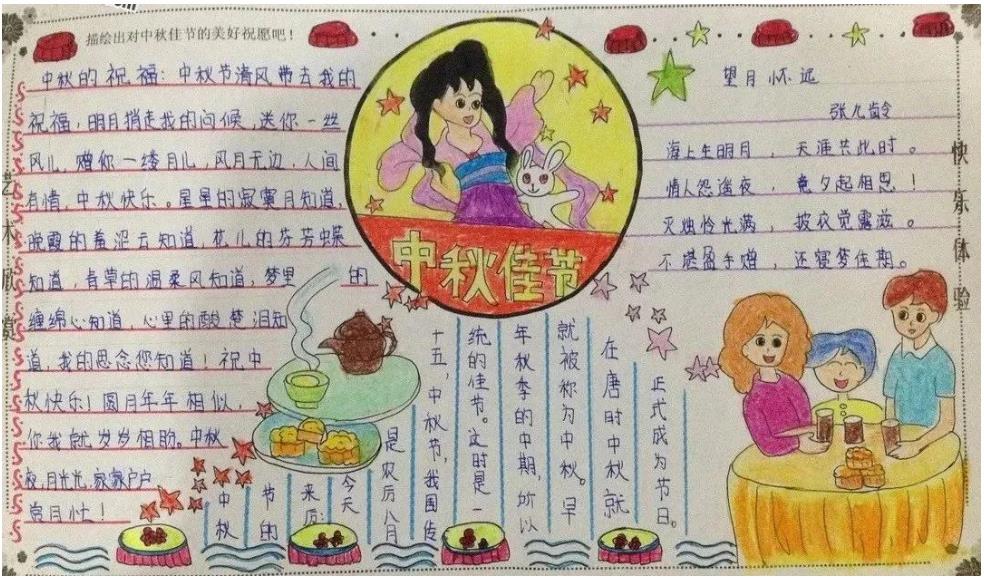 描绘出对中秋佳节的美好祝愿吧！
中秋的祝福：中秋节清风带去我的
祝福，明月捎走我的问候，送你一丝
风儿，赠你一缕月儿，风月无边，人间
有情，中秋快乐。星星的寂寞月知道，
晚霞的羞涩云知道，花儿的芬芳蝶
知道，青草的温柔风知道，梦里的
缠绵心知道，心里的酸楚泪知
道，我的思念您知道！祝中
秋快乐！圆月年年相似，
你我就岁岁相盼。中秋
夜，月光光，家家户户
赏月忙！
中秋佳节
望月怀远
张九龄
海上生明月，天涯共此时。
情人怨遥夜，竟夕起相思！
灭烛怜光满，披衣觉露滋。
不堪盈手赠，还寝梦佳期。
中秋
节的
来历：
今天
是农历八月
十五，中秋节，我国传
统的佳节。这时是一
年秋季的中期，所以
就被称为中秋。早
在唐时中秋就
正式成为节日。
艺术欣赏
快乐体验